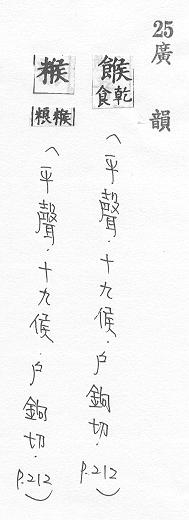 25廣韻
餱乾食(平聲.十九侯.户鉤切.P.212)
糇糇粮(平聲.十九侯.户鉤切.P.212)